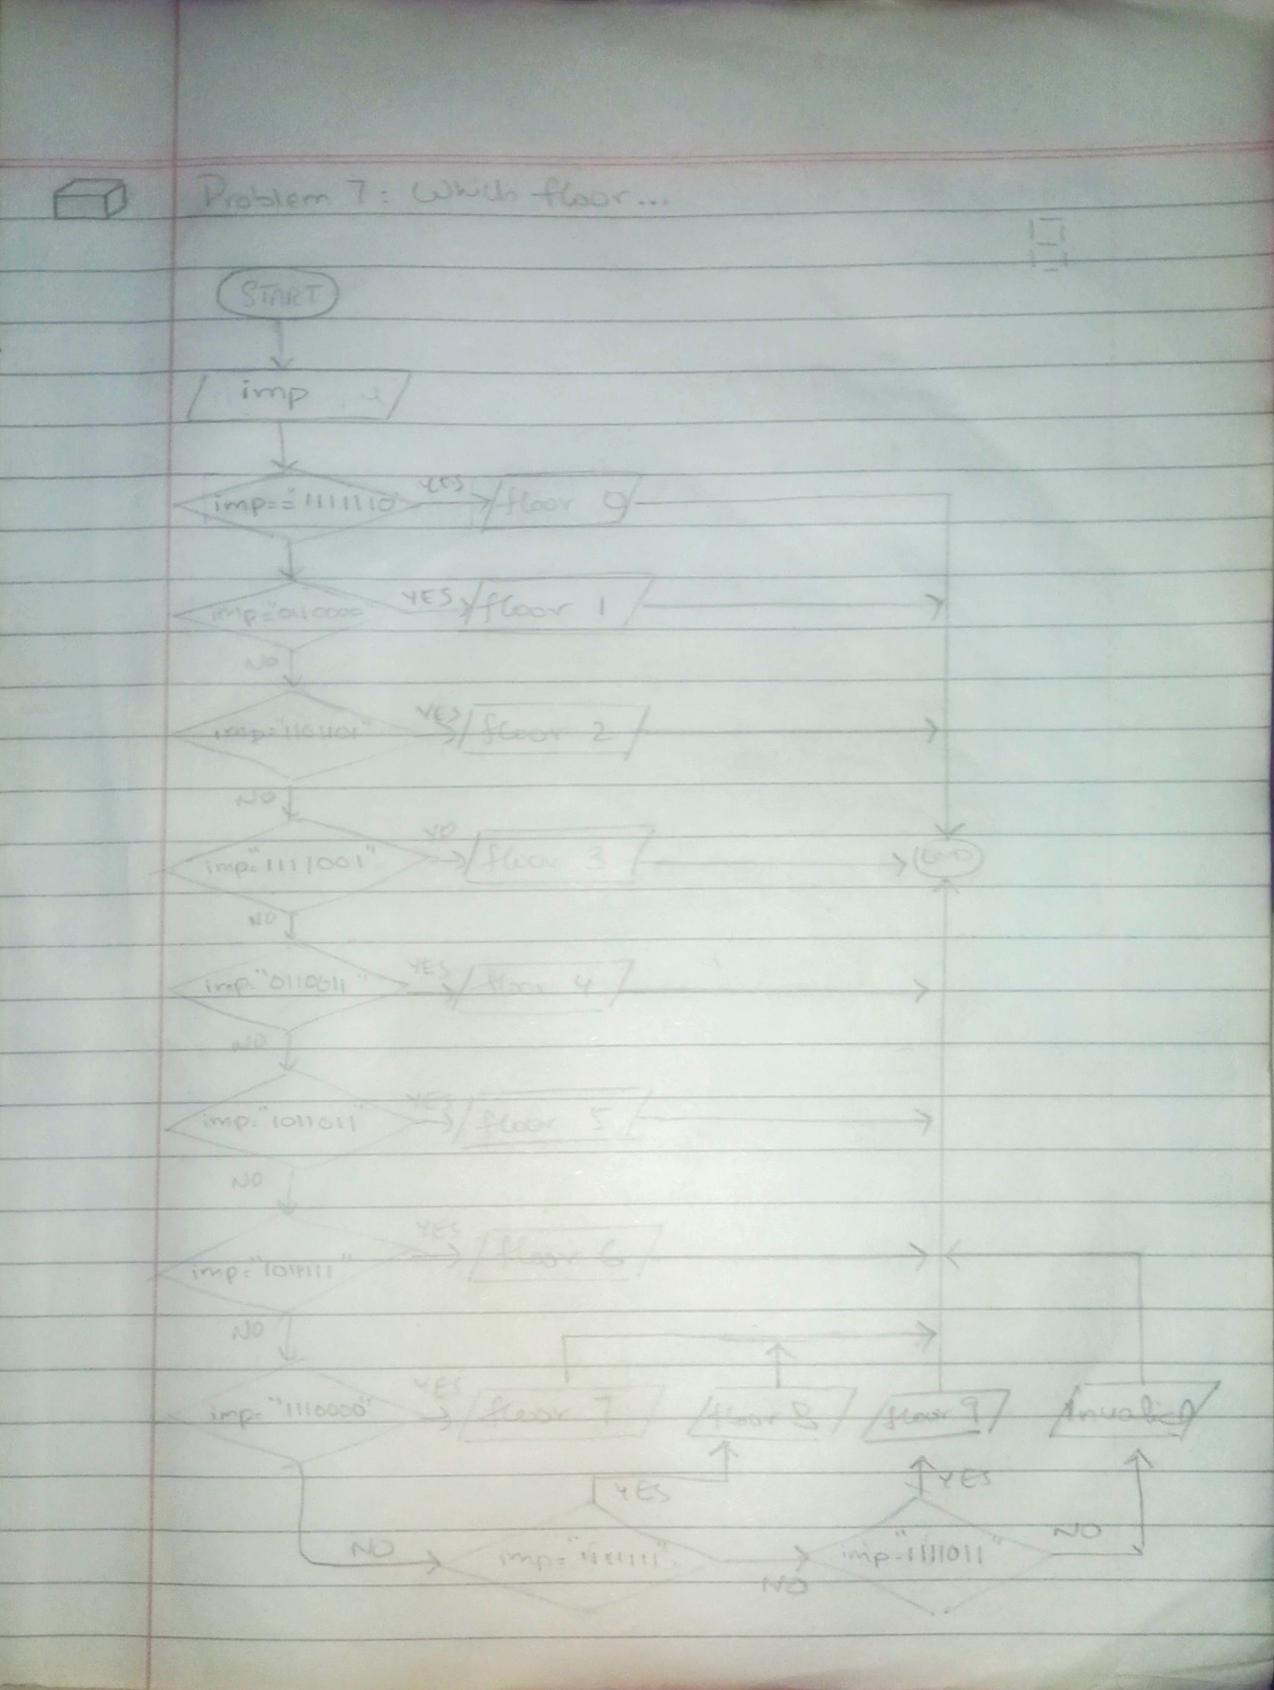 Problem 7: Which floor...
START
imp
imp=="1111110" YES floor 0
imp="0110000" YES floor 1
NO
imp="1101101" YES floor 2
NO
imp="1111001" NO floor 3 END
NO
imp="0110011" YES floor 4
NO
imp="1011011" YES floor 5
NO
imp="1011111" YES floor 6
NO
imp="1110000" YES floor 7 floor 8 floor 9 Invalid
YES YES
NO imp="1111111" NO imp="1111011" NO